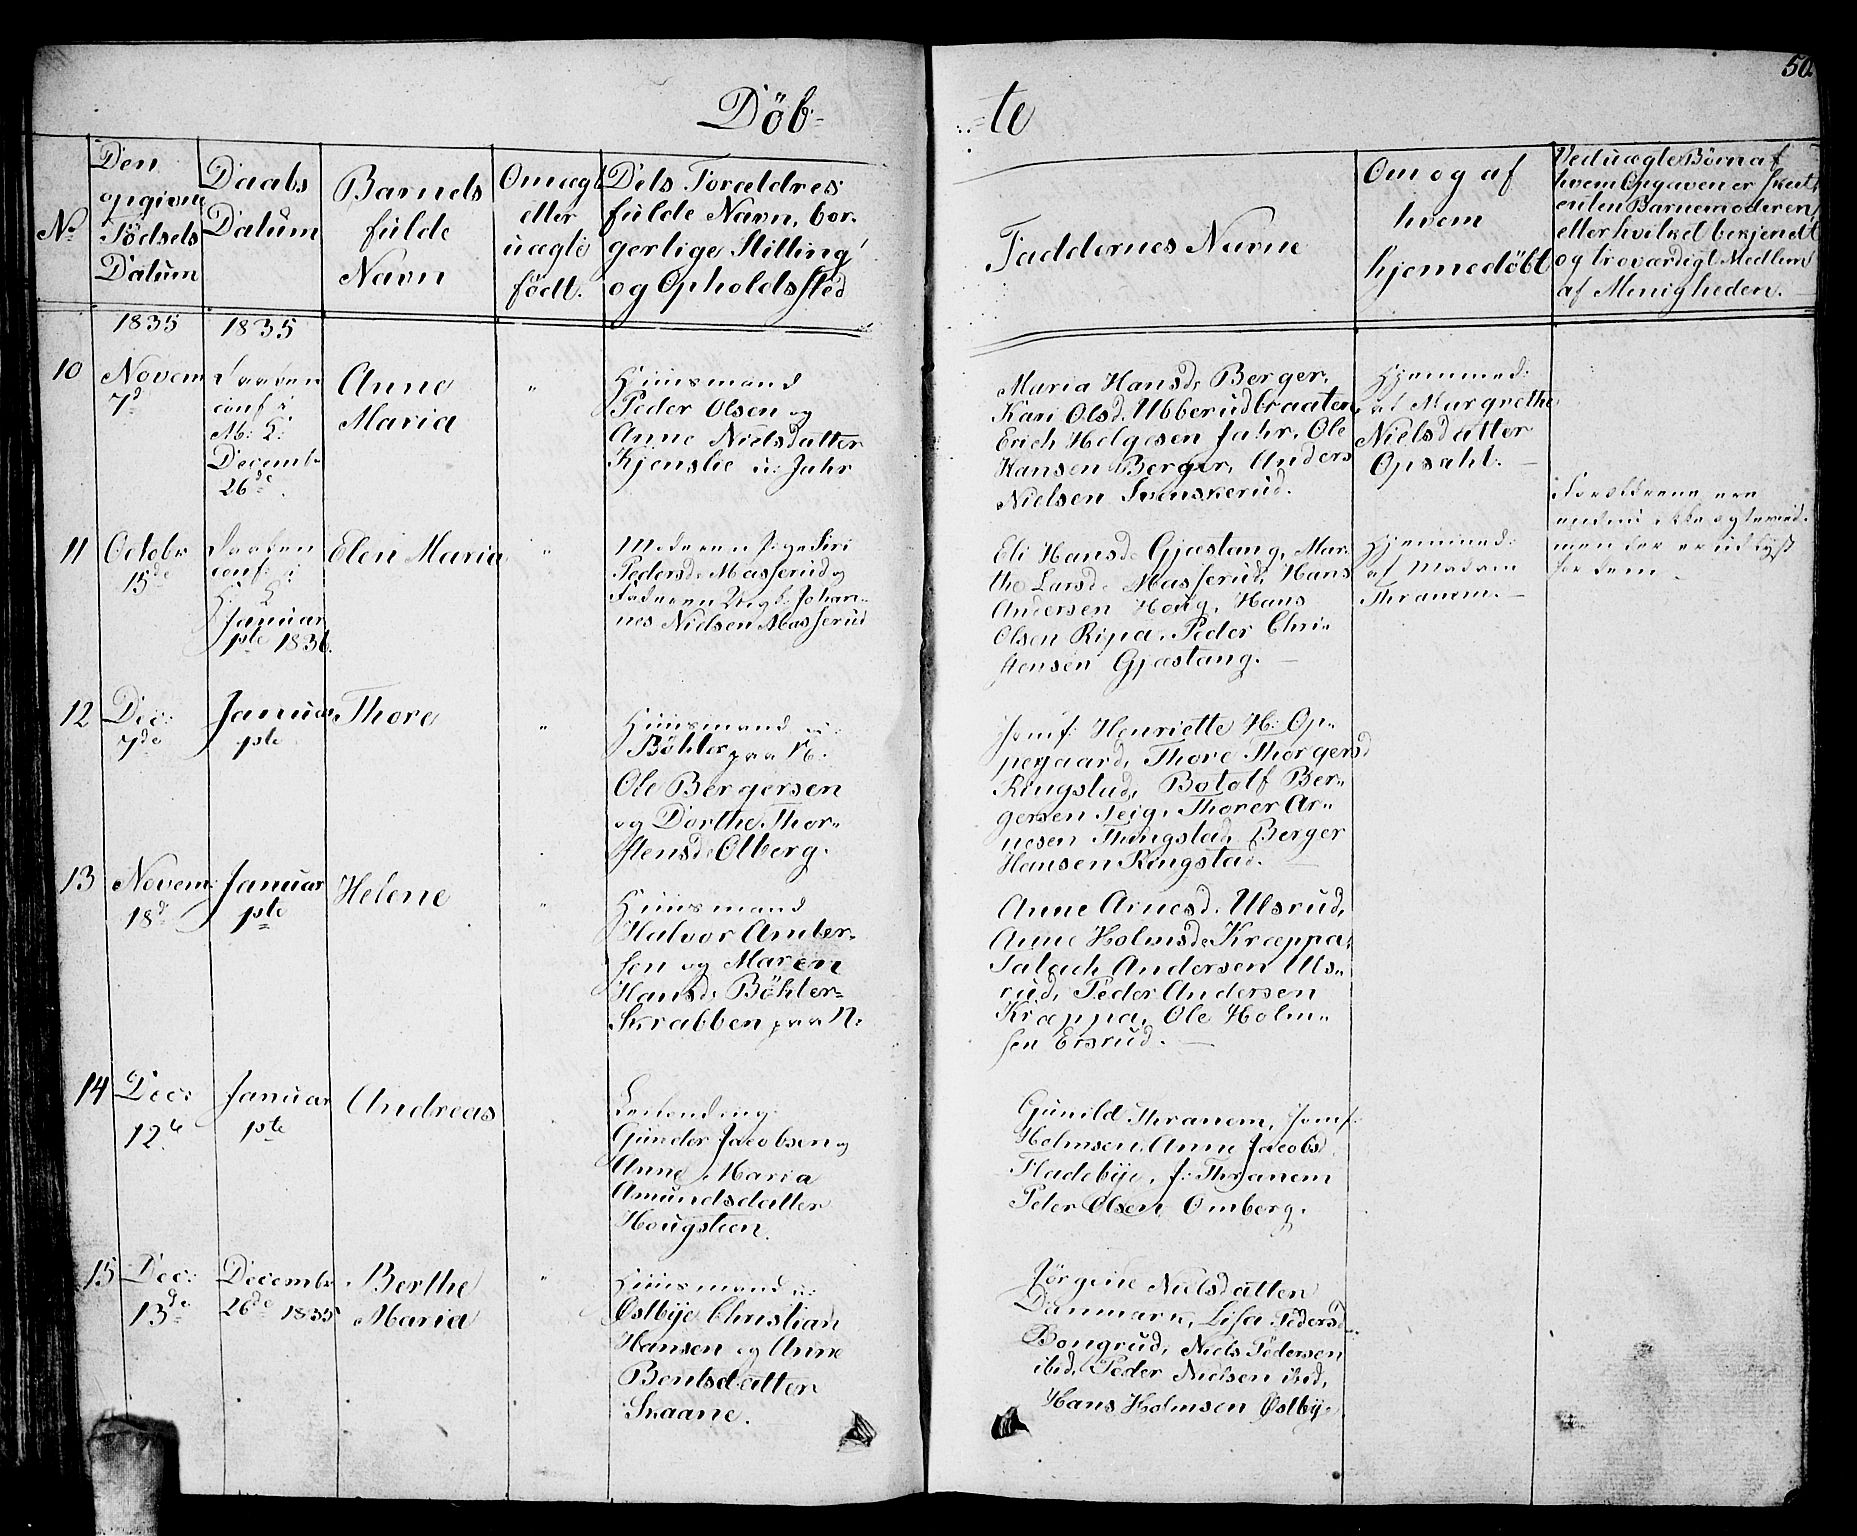 50.
Döb-
-te
No
Den
opgivne
Födsels
Datum
Daabs
Datum
Barnets
fulde
Navn
Om ægte
eller
uægte
födt.
Dets Forældres
fulde Navn, bor-
gerlige Stilling
og Opholdssted
Faddernes Navne
Om og af
hvem
hjemedöbt
Ved uægte Börn af
hvem Opgaven er skeet,
enten Barnemoderen
eller hvilket bekjendt
og troværdigt Medlem
af Menigheden.
1835
1835
10
Novem
7d
Daaben
conf: i
M: K:
Decembr
26de.
Anne
Maria
"
Huusmand
Peder Olsen og
Anne Nielsdatter
Kjenslie u: Jahr
Maria Hansd: Berger,
Kari Olsd. Ubberudbraaten
Erich Helgesen Jahr, Ole
Hansen Berger, Anders
Nielsen Svenskerud.
Hjemmed:
af Margrethe
Nielsdatter
Opsahl.
11
Octobr
15de
Daaben
conf: i
H: K:
Januar
1ste 1836.
Elen Maria
"
Moderen Pige Siri
Pedersd: Masserud og
Faderen Ungk: Johan-
nes Nielsen Masserud
Eli Hansd: Gjæstang, Mar-
the Larsd: Masserud, Hans
Andersen Houg, Hans
Olsen Ripa, Peder Chri-
stensen Gjæstang.
Hjemmed:
af Madam
Thranem.
Forældrene ere
endnu ikke ægteviede
men der er udlyst
for dem.
12
Dec:
7de
Januar
1ste
Thore
"
Huusmand u:
Böhler paa N:
Ole Bergersen
og Dorthe Thor-
stensd: Olberg.
Jomf: Henriette H: Op-
pegaard, Thore Thorgersd
Ringstad, Botolf Ber-
gersen Teig, Thorer Ar-
nesen Thingstad, Berger
Hansen Ringstad.
13
Novem:
18d
Januar
1ste
Helene
"
Huusmand
Halvor Ander-
sen og Maren
Hansd: Böhler-
Skrabben paa N:
Anne Arnesd. Ulsrud,
Anne Holmsd: Kræppa,
Salach Andersen Uls-
rud, Peder Andersen
Kræppa, Ole Holm-
sen Ersrud.
14
Dec:
12te
Januar
1ste
Andreas
Leilending:
Gunder Jacobsen og
Anne Maria
Amundsdatter
Hougsteen.
Gunild Thranem, Jomf:
Holmsen, Anne Jacobsd.
Fladebye, f: Thranem
Peder Olsen Omberg.
15
Dec:
13de
Decembr
26de 1835
Berthe
Maria
"
Huusmand u:
Østbye Christian
Hansen og Anne
Bentsdatter
Skaane.
Jörgine Nielsdatter
Danmark, Lisa Pedersd
Bongrud, Niels Pedersen
ibid, Peder Nielsen ibid,
Hans Holmsen Østbye